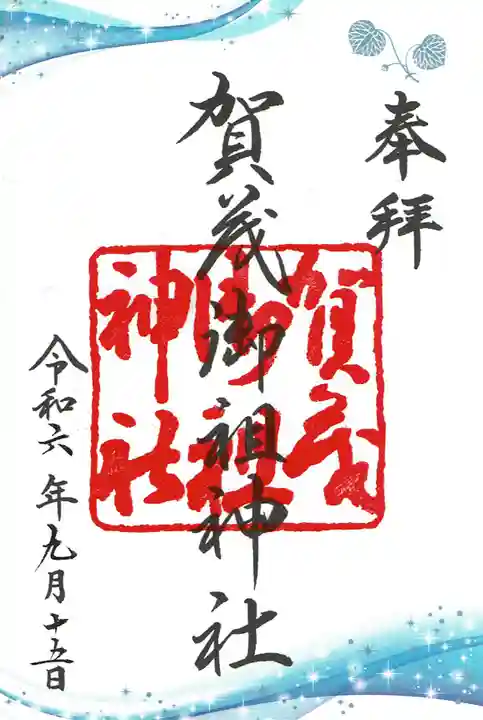 奉拝
賀茂御祖神社
賀茂
御祖
神社
令和六年九月十五日